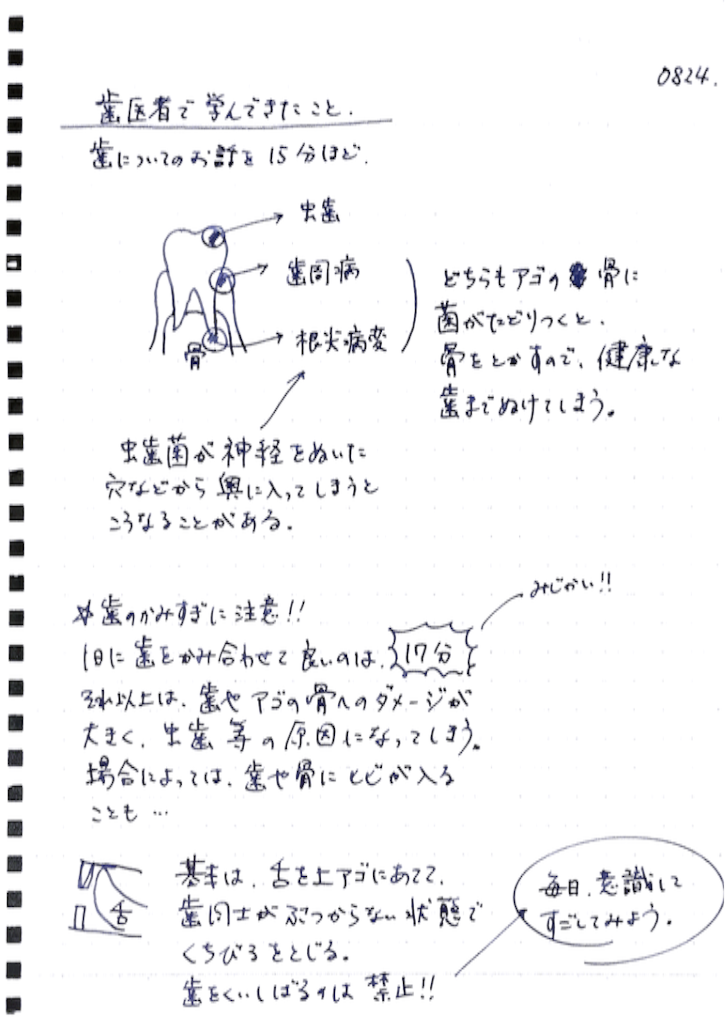 0824.
歯医者で学んできたこと.
歯についてのお話を15分ほど.
虫歯
歯周病
根尖病変
骨
どちらもアゴの骨に
菌がたどりつくと、
骨をとかすので、健康な
歯までぬけてしまう。
虫歯菌が神経をぬいた
穴などから奥に入ってしまうと
こうなることがある.
みじかい!!
☆歯のかみすぎに注意!!
1日に歯をかみ合わせて良いのは、17分
それ以上は、歯やアゴの骨へのダメージが
大きく、虫歯等の原因になってしまう。
場合によっては、歯や骨にヒビが入る
ことも…
舌
基本は、舌を上アゴにあてて、
歯同士がぶつからない状態で
くちびるをとじる。
歯をくいしばるのは禁止!!
毎日、意識して
すごしてみよう。